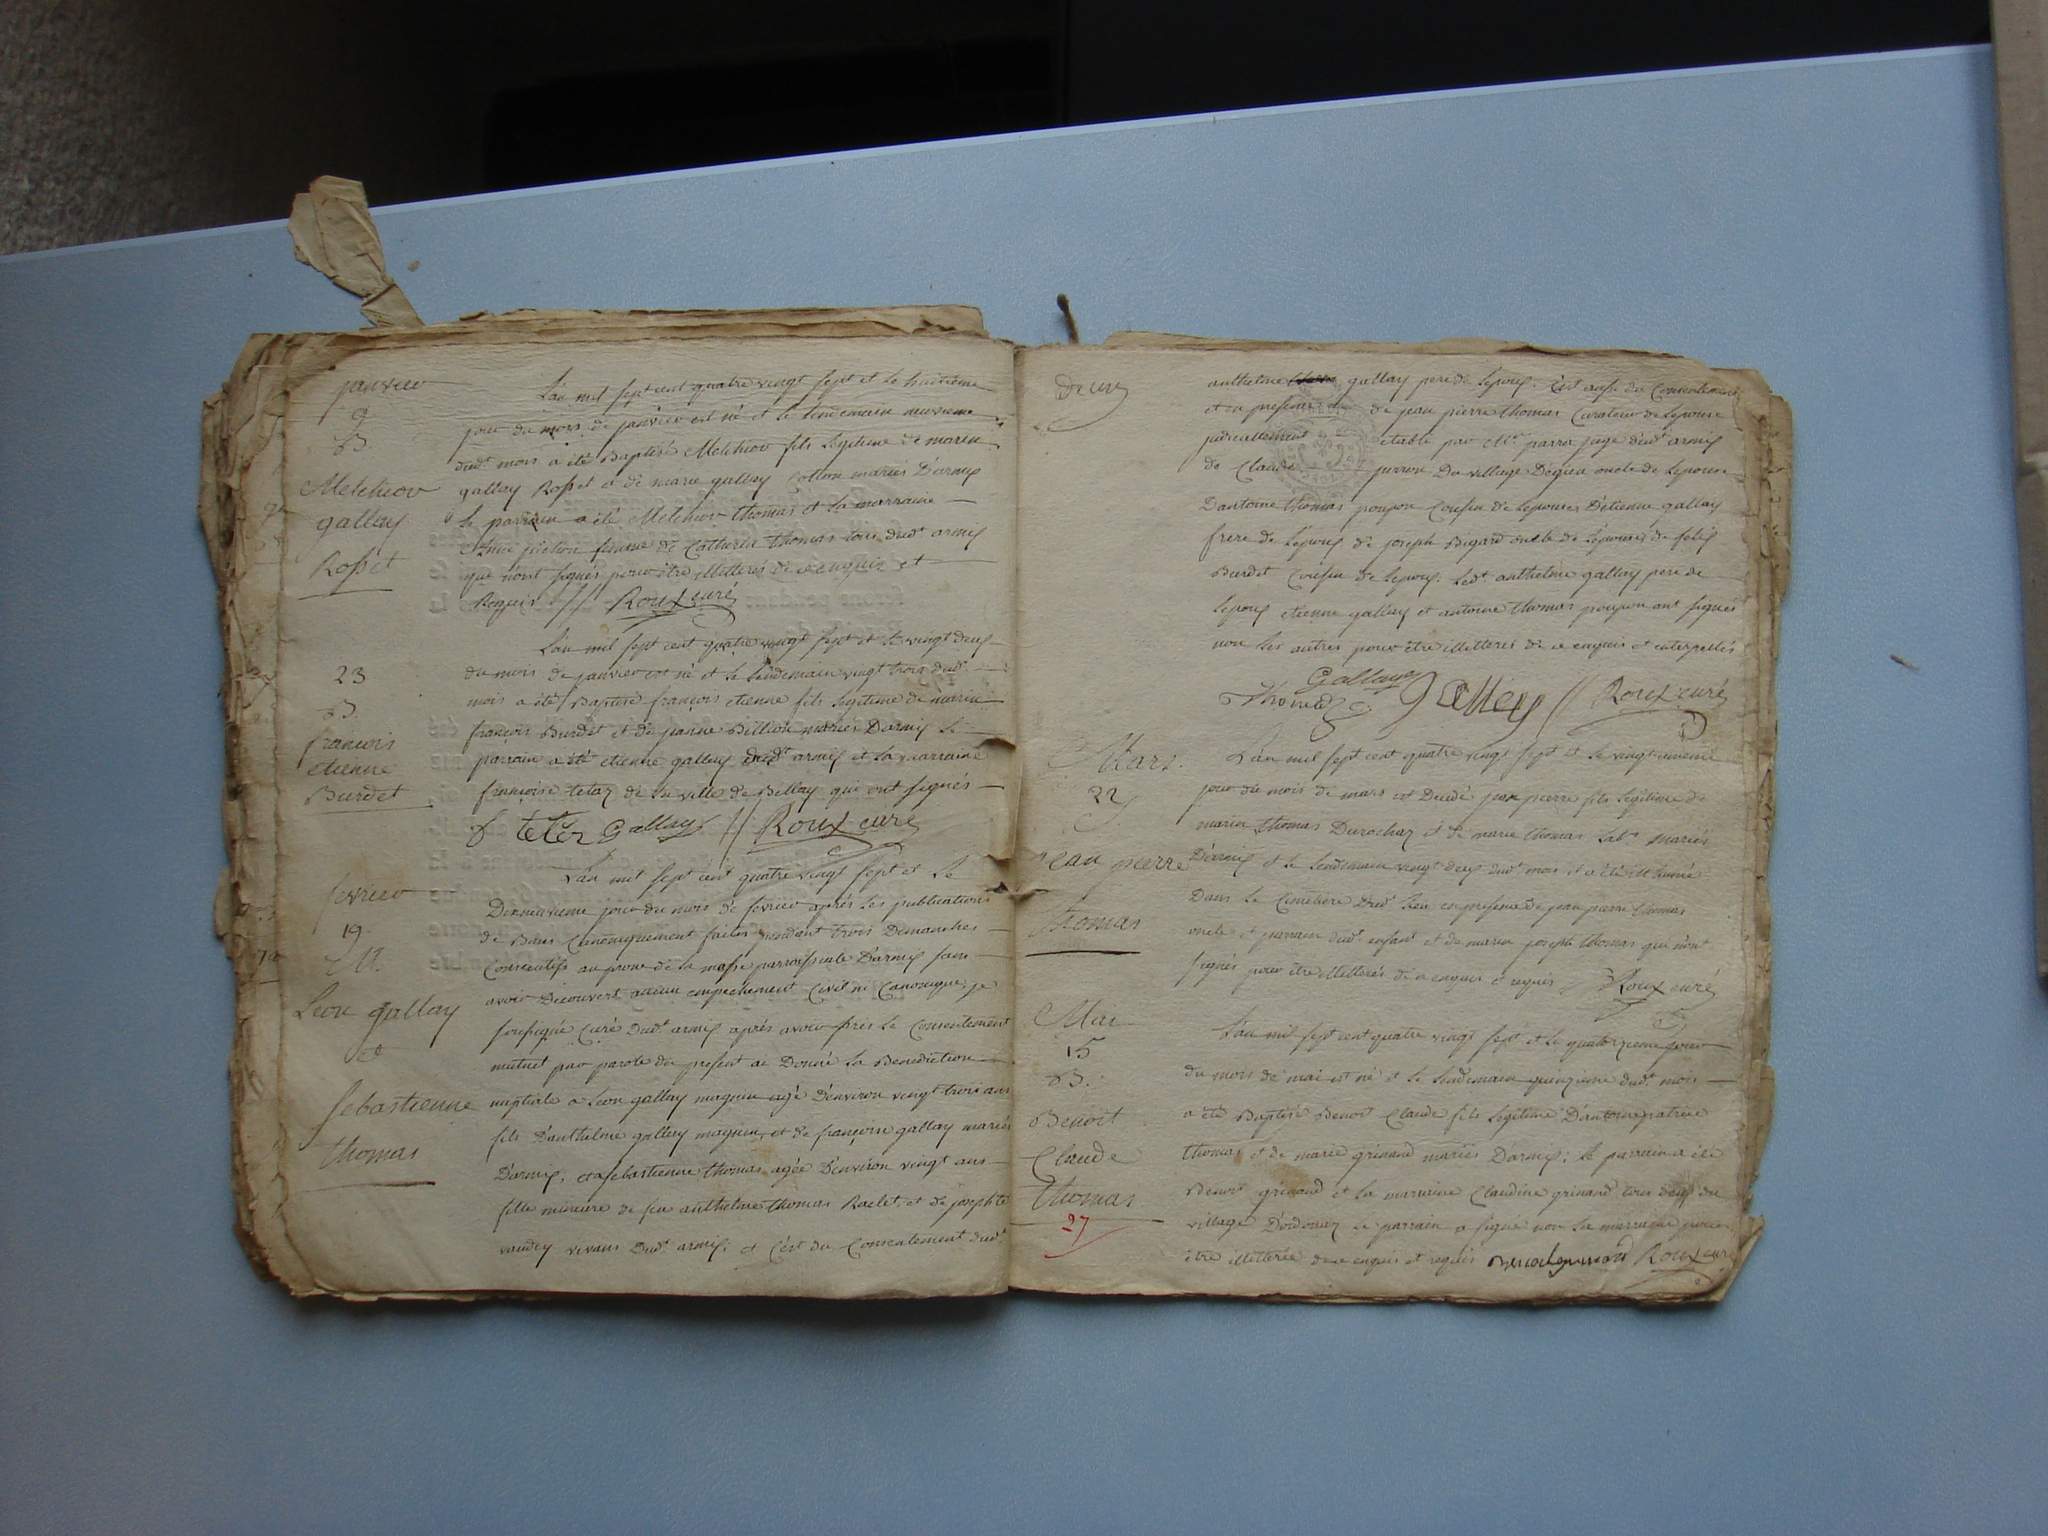 janvier
9
B.
Melchior
gallay
Rosset
L'an mil sept cent quatre vingt sept et le huitieme
jour du mois de janvier est né et le lendemain neuvieme
dud.t mois a été Baptisé Melchior fils legitime de marin
gallay Rosset et de marie gallay mariés D'armis
le parrain a été Melchior thomas et la marraine
femme de thomas tous dud.t armis
qui n'ont signés pour être illitterés de ce enquis et
Requis. // Roux curé
23
B.
françois
etienne
Burdet
L'an mil sept cent quatre vingt sept et le vingt deux
du mois de janvier est né et le lendemain vingt trois dud.t
mois a été Baptisé françois etienne fils legitime de marin
françois Burdet et de jeanne Billion mariés Darmis le
parrain a été etienne gallay dud.t armis et la marraine
françoise de la ville de Bellay qui ont signés
Gallay // Roux curé
fevrier
19
M.
Leon gallay
et
sebastienne
thomas
L'an mil sept cent quatre vingt sept et le
Dixneuvieme jour du mois de fevrier après les publications
de Bans Canoniquement faites pendant trois Demanches
Consecutifs au prone de la messe parroissiale Darmis sans
avoir Découvert aucun empechement Civil ni Canonique je
soussigné Curé dud.t armis après avoir pris le Consentement
mutuel par parole de present ai Donné la Benediction
nuptiale a Leon gallay magnin agé d'environ vingt trois ans
fils D'anthelme gallay magnin, et de françoise gallay mariés
D'armis, et a sebastienne thomas agée D'environ vingt ans
fille mineure de feu anthelme thomas Raclet, et de josephte
vivans dud.t armis; et c'est du Consentement dud.t
anthelme gallay pere de l'epoux. C'est aussi du Consentement
et en presence de jean pierre thomas Curateur de l'epouse
judiciallement etabli par M.e parra juge dud.t armis
de Claude perron Du village oncle de l'epouse
D'antoine thomas poupon Cousin de l'epouse D'étienne gallay
frere de l'epoux de joseph Bigard oncle de l'epouse de felix
Burdet Cousin de l'epoux. Led.t anthelme gallay pere de
l'epoux etienne gallay et antoine thomas poupon ont signés
non les autres pour être illitterés de ce enquis et interpellés
Gallay
Thomas Gallay // Roux curé
Mars.
22
S.
jean pierre
thomas
L'an mil sept cent quatre vingt sept et le vingtunieme
jour du mois de mars est Decedé jean pierre fils legitime de
marin thomas Durochaz et de marie thomas mariés
D'armis et le lendemain vingt deux dud.t mois il a été inhumé
Dans le Cimetiere Dud.t lieu en presence de jean pierre thomas
oncle et parrain dud.t enfant et de marin joseph thomas qui n'ont
signés pour être illitterés de ce enquis et requis Roux curé
Mai
15
B.
Benoit
Claude
thomas
27
L'an mil sept cent quatre vingt sept et le quatorzieme jour
du mois de mai est né et le lendemain quinzieme dud.t mois
a été Baptisé Benoit Claude fils legitime D'antoine
thomas et de marie grinand mariés Darmis; le parrain a été
Benoit grinand et la marraine Claudine grinand tous deux du
village le parrain a signé non la marraine pour
être illitterée de ce enquis et requis Benoit grinand Roux curé